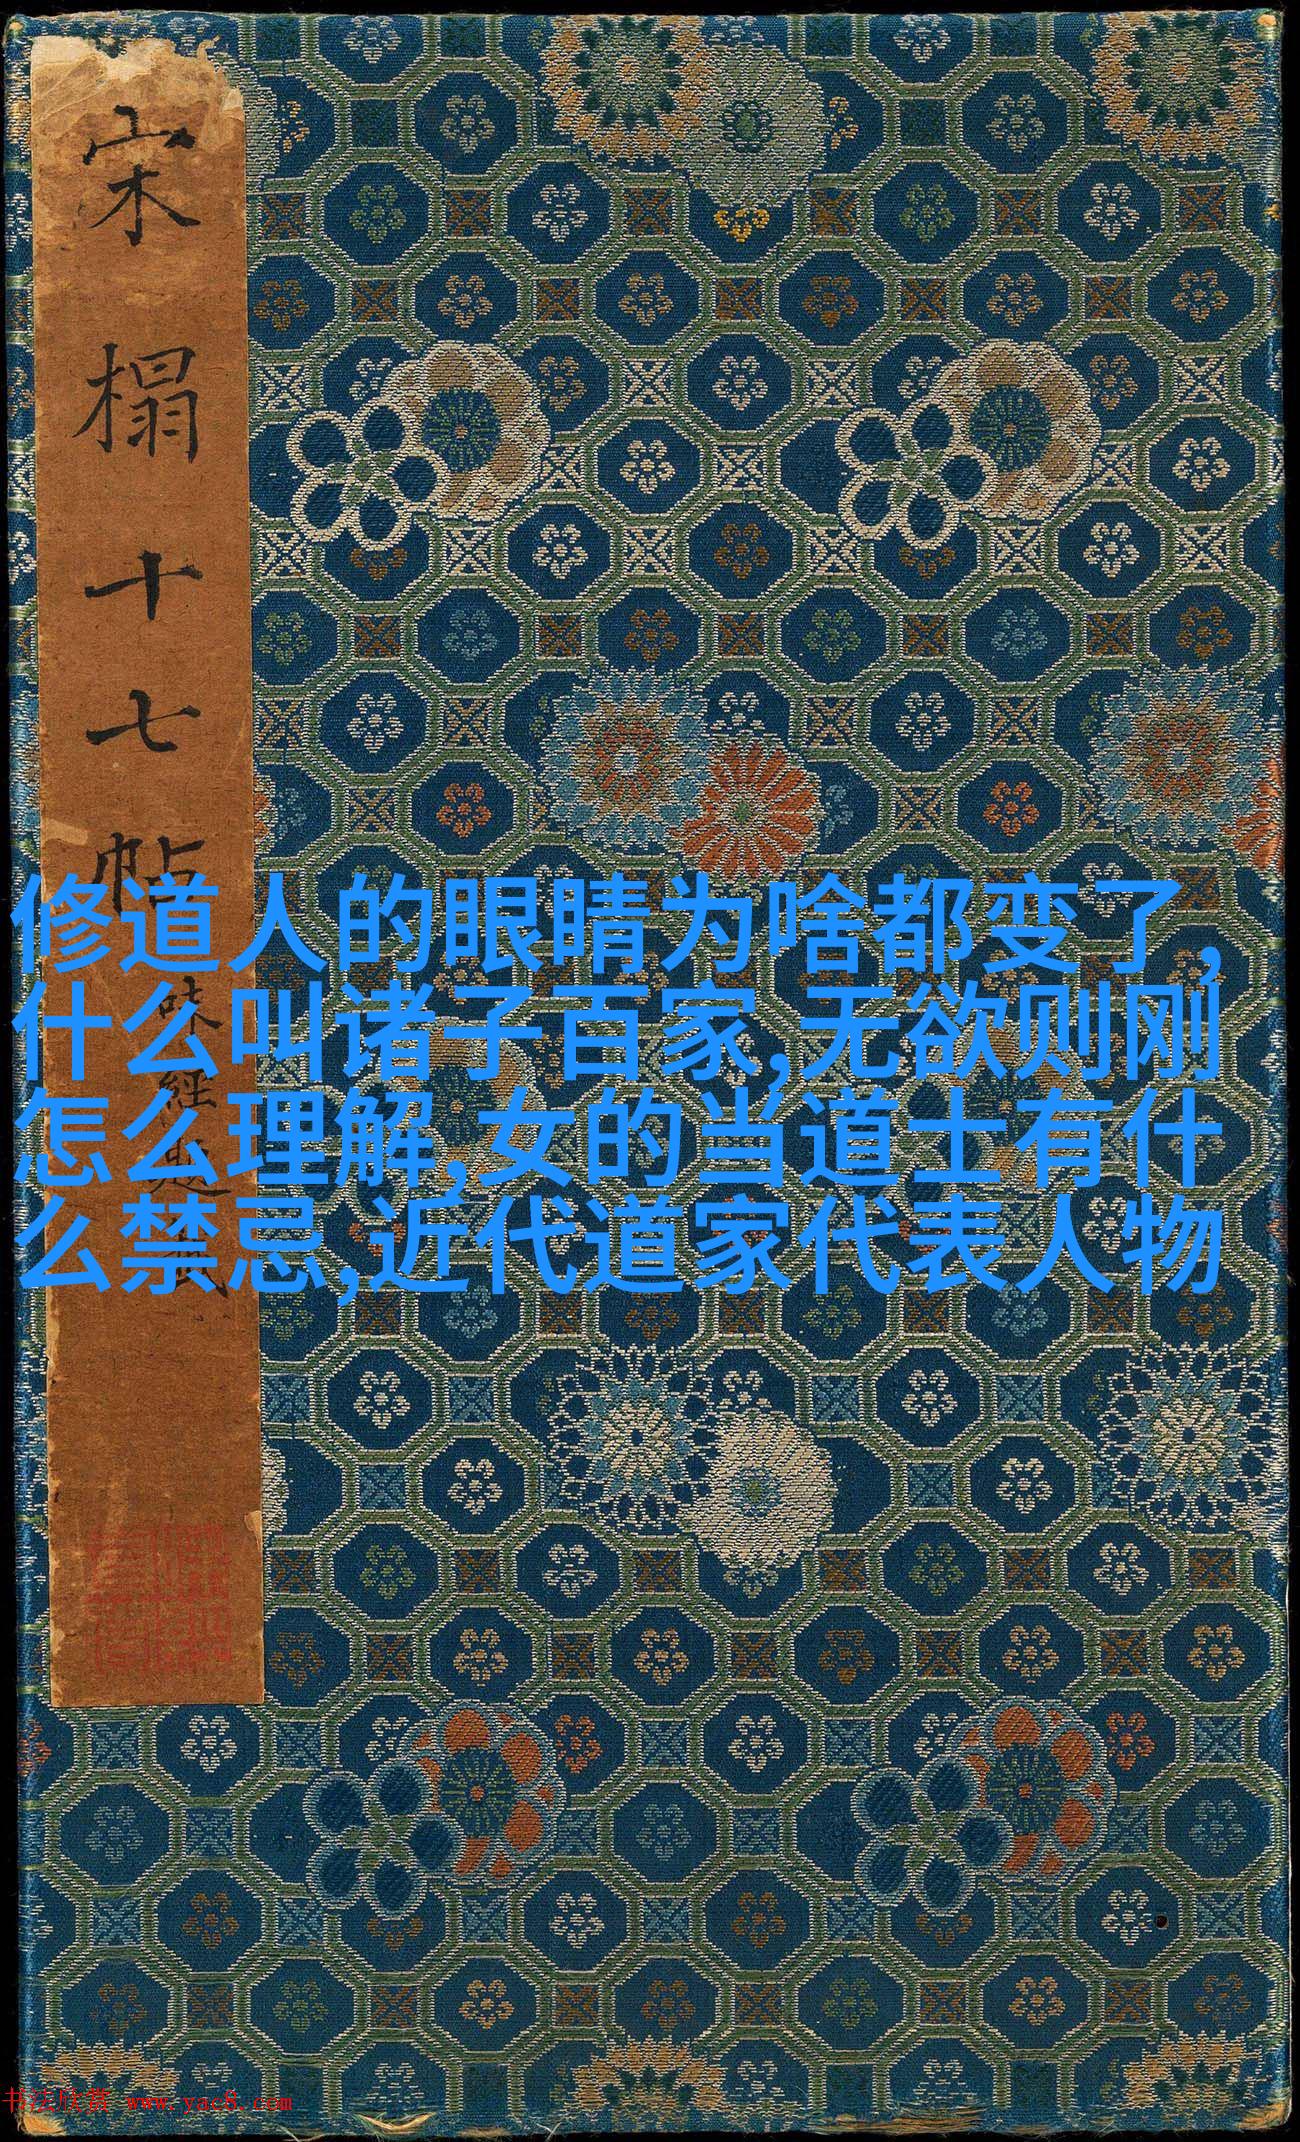 宋榻十七帖
修道人的眼睛为啥都变了,
什么叫诸子百家,无欲则刚
怎么理解,女的当道士有什
么禁忌,近代道家代表人物
书法欣赏 www.yac8.com